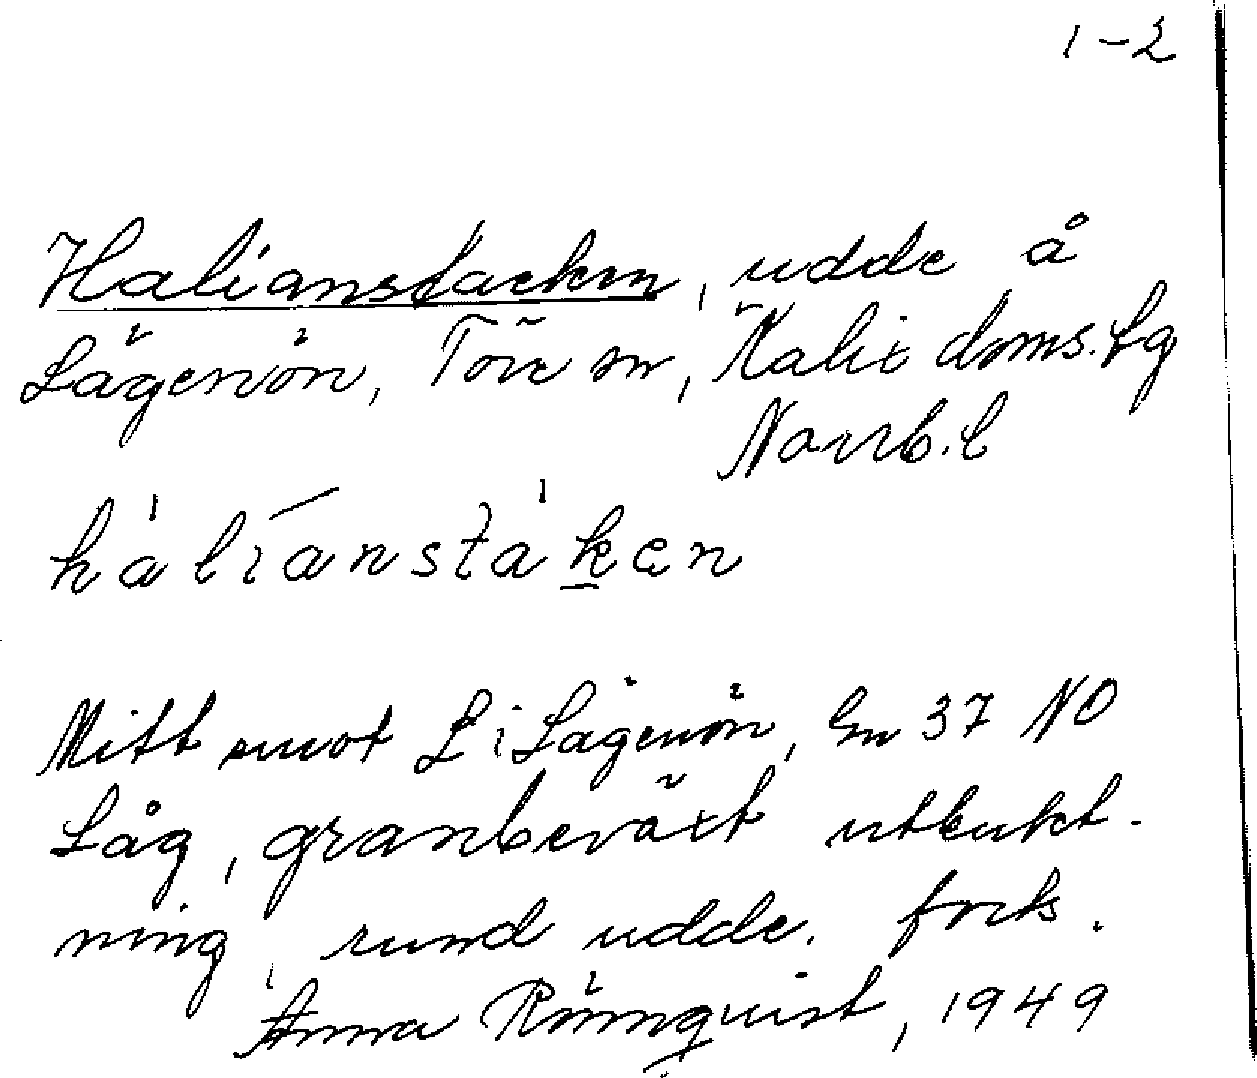 1-2
Halianstacken, udde å
Lågenön, Töre sn, Kalix doms.lg
Norrb.l
háli̅anstáken
Mitt emot L i Lågenön, En 37 NO
Låg, granbeväxt utbukt-
ning, rund udde. forts.
Anna Rönnquist, 1949